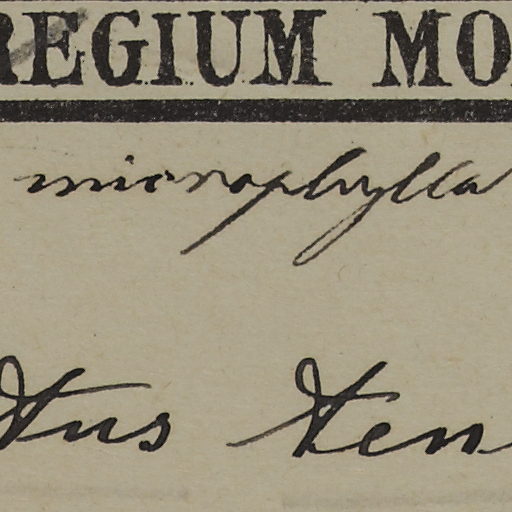 REGIUM MO
microphylla
tus ten